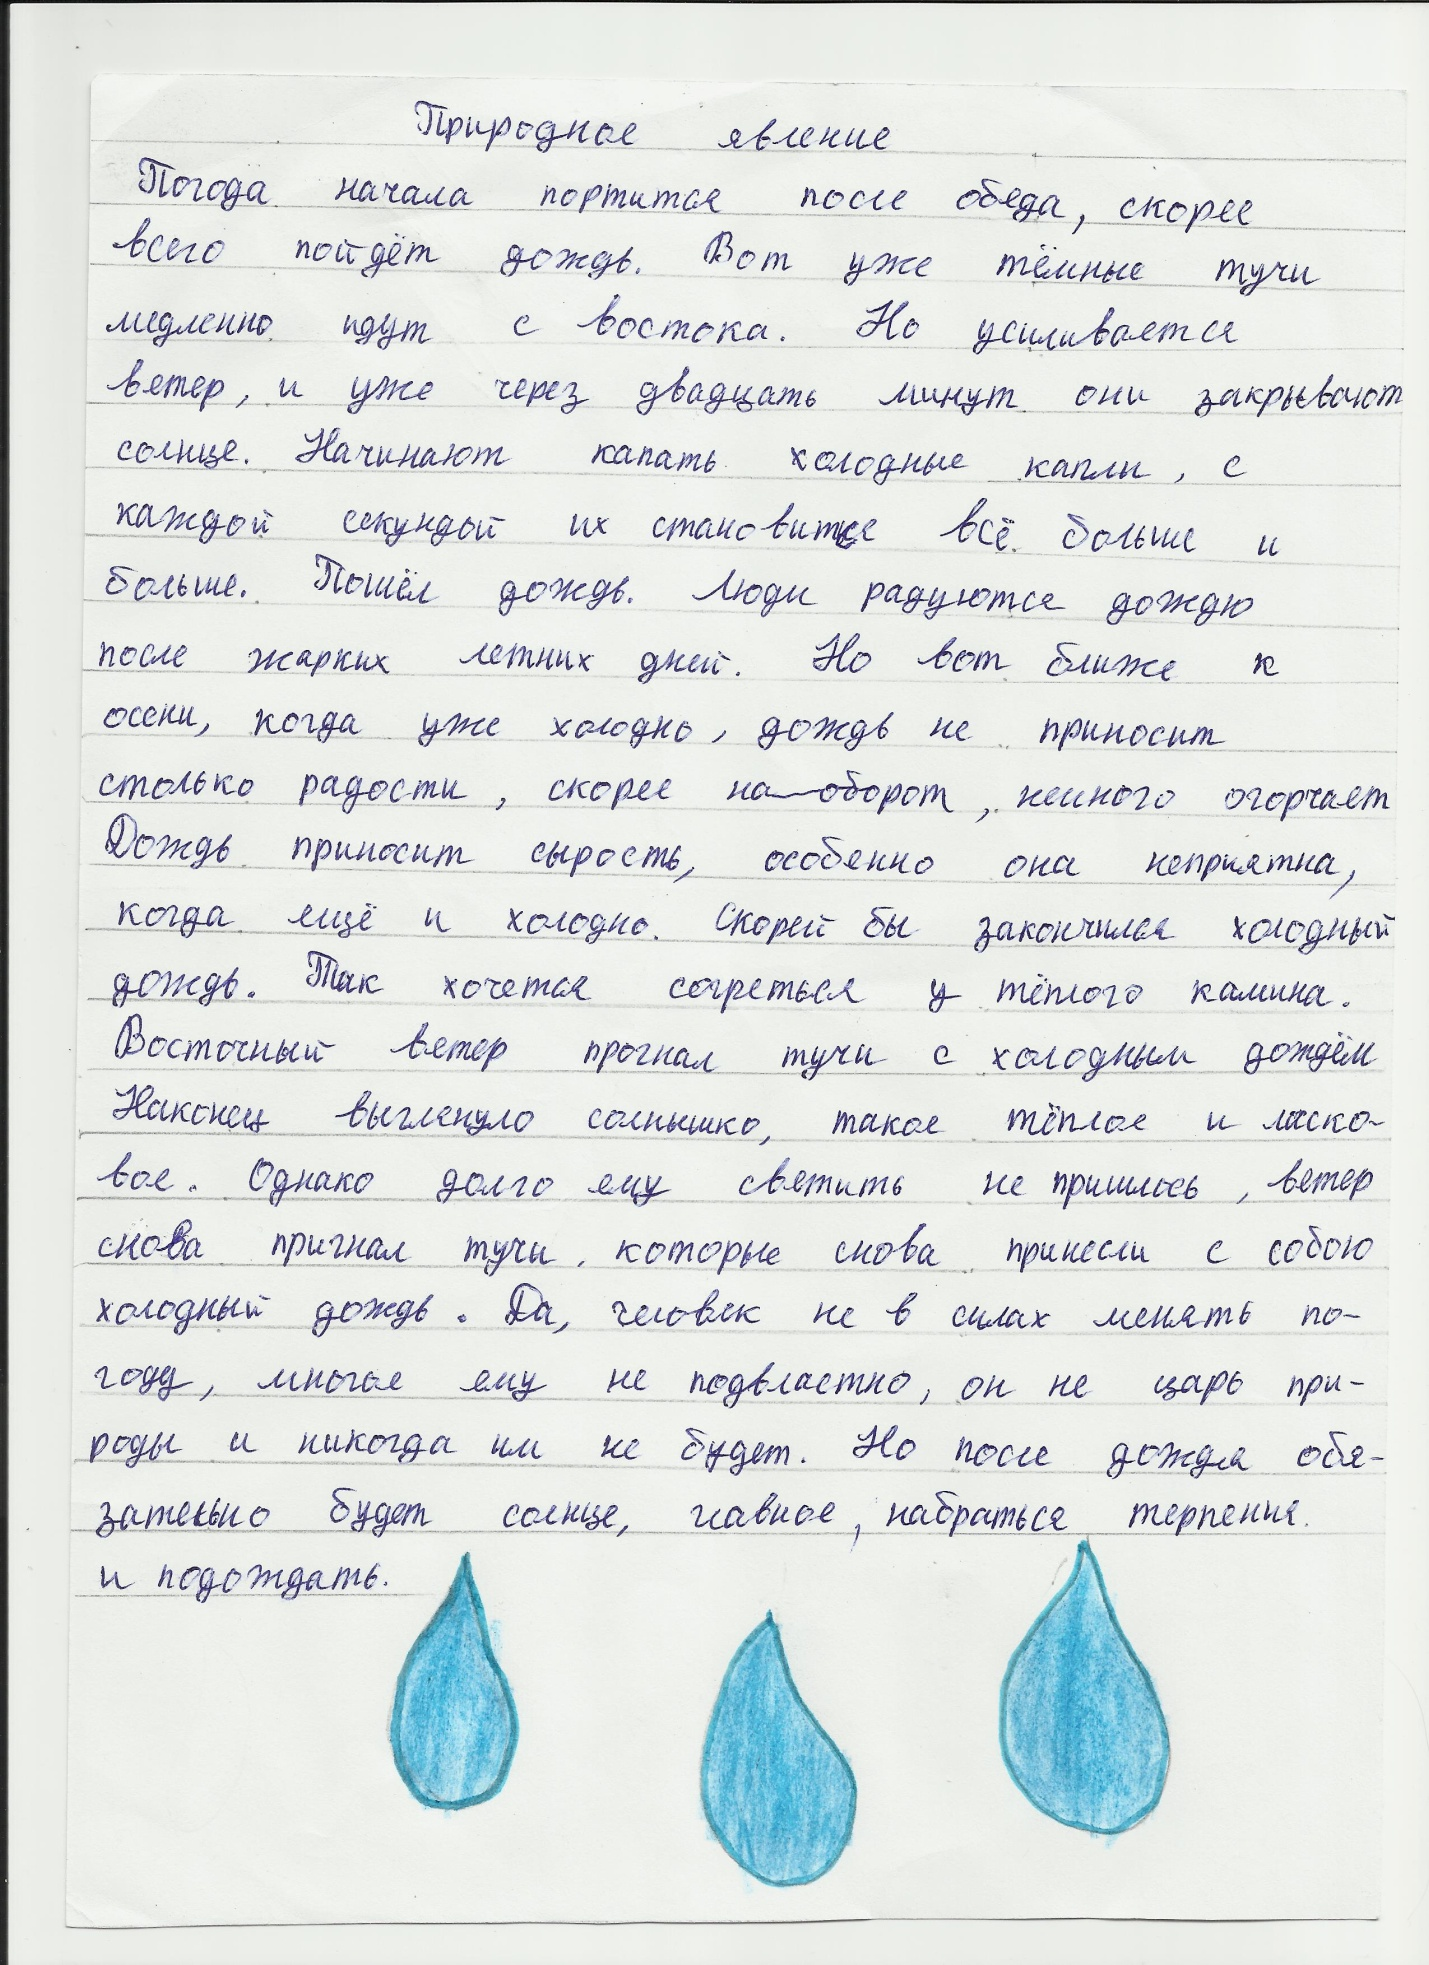 Природное явление
Погода начала портится после обеда, скорее
всего пойдёт дождь. Вот уже тёмные тучи
медленно идут с востока. Но усиливается
ветер, и уже через двадцать минут они закрывают
солнце. Начинают капать холодные капли, с
каждой секундой их становится всё больше и
больше. Пошёл дождь. Люди радуются дождю
после жарких летних дней. Но вот ближе к
осени, когда уже холодно, дождь не приносит
столько радости, скорее на—оборот, немного огорчает
Дождь приносит сырость, особенно она неприятна,
когда ещё и холодно. Скорей бы закончился холодный
дождь. Так хочется согреться у тёплого камина.
Восточный ветер прогнал тучи с холодным дождём
Наконец выглянуло солнышко, такое тёплое и ласко-
вое. Однако долго ему светить не пришлось, ветер
снова пригнал тучи, которые снова принесли с собою
холодный дождь. Да, человек не в силах менять по-
году, многое ему не подвластно, он не царь при-
роды и никогда им не будет. Но после дождя обя-
зательно будет солнце, главное, набраться терпения
и подождать.